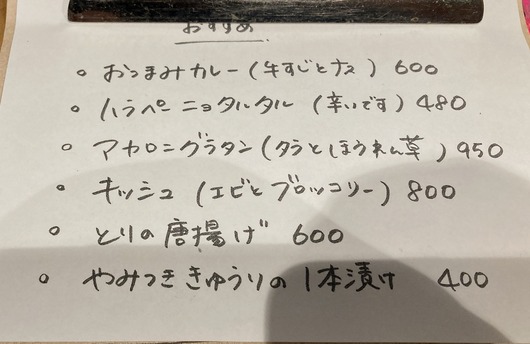 おすすめ
○ おつまみカレー (牛すじとナス) 600
○ ハラペーニョタルタル (辛いです) 480
○ マカロニグラタン (タラとほうれん草) 950
○ キッシュ (エビとブロッコリー) 800
○ とりの唐揚げ 600
○ やみつききゅうりの1本漬け 400